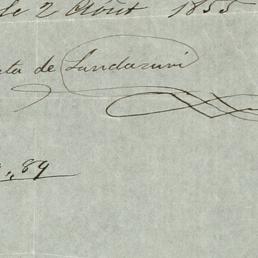 le 2 Août 1855
ata de Landazuri
89